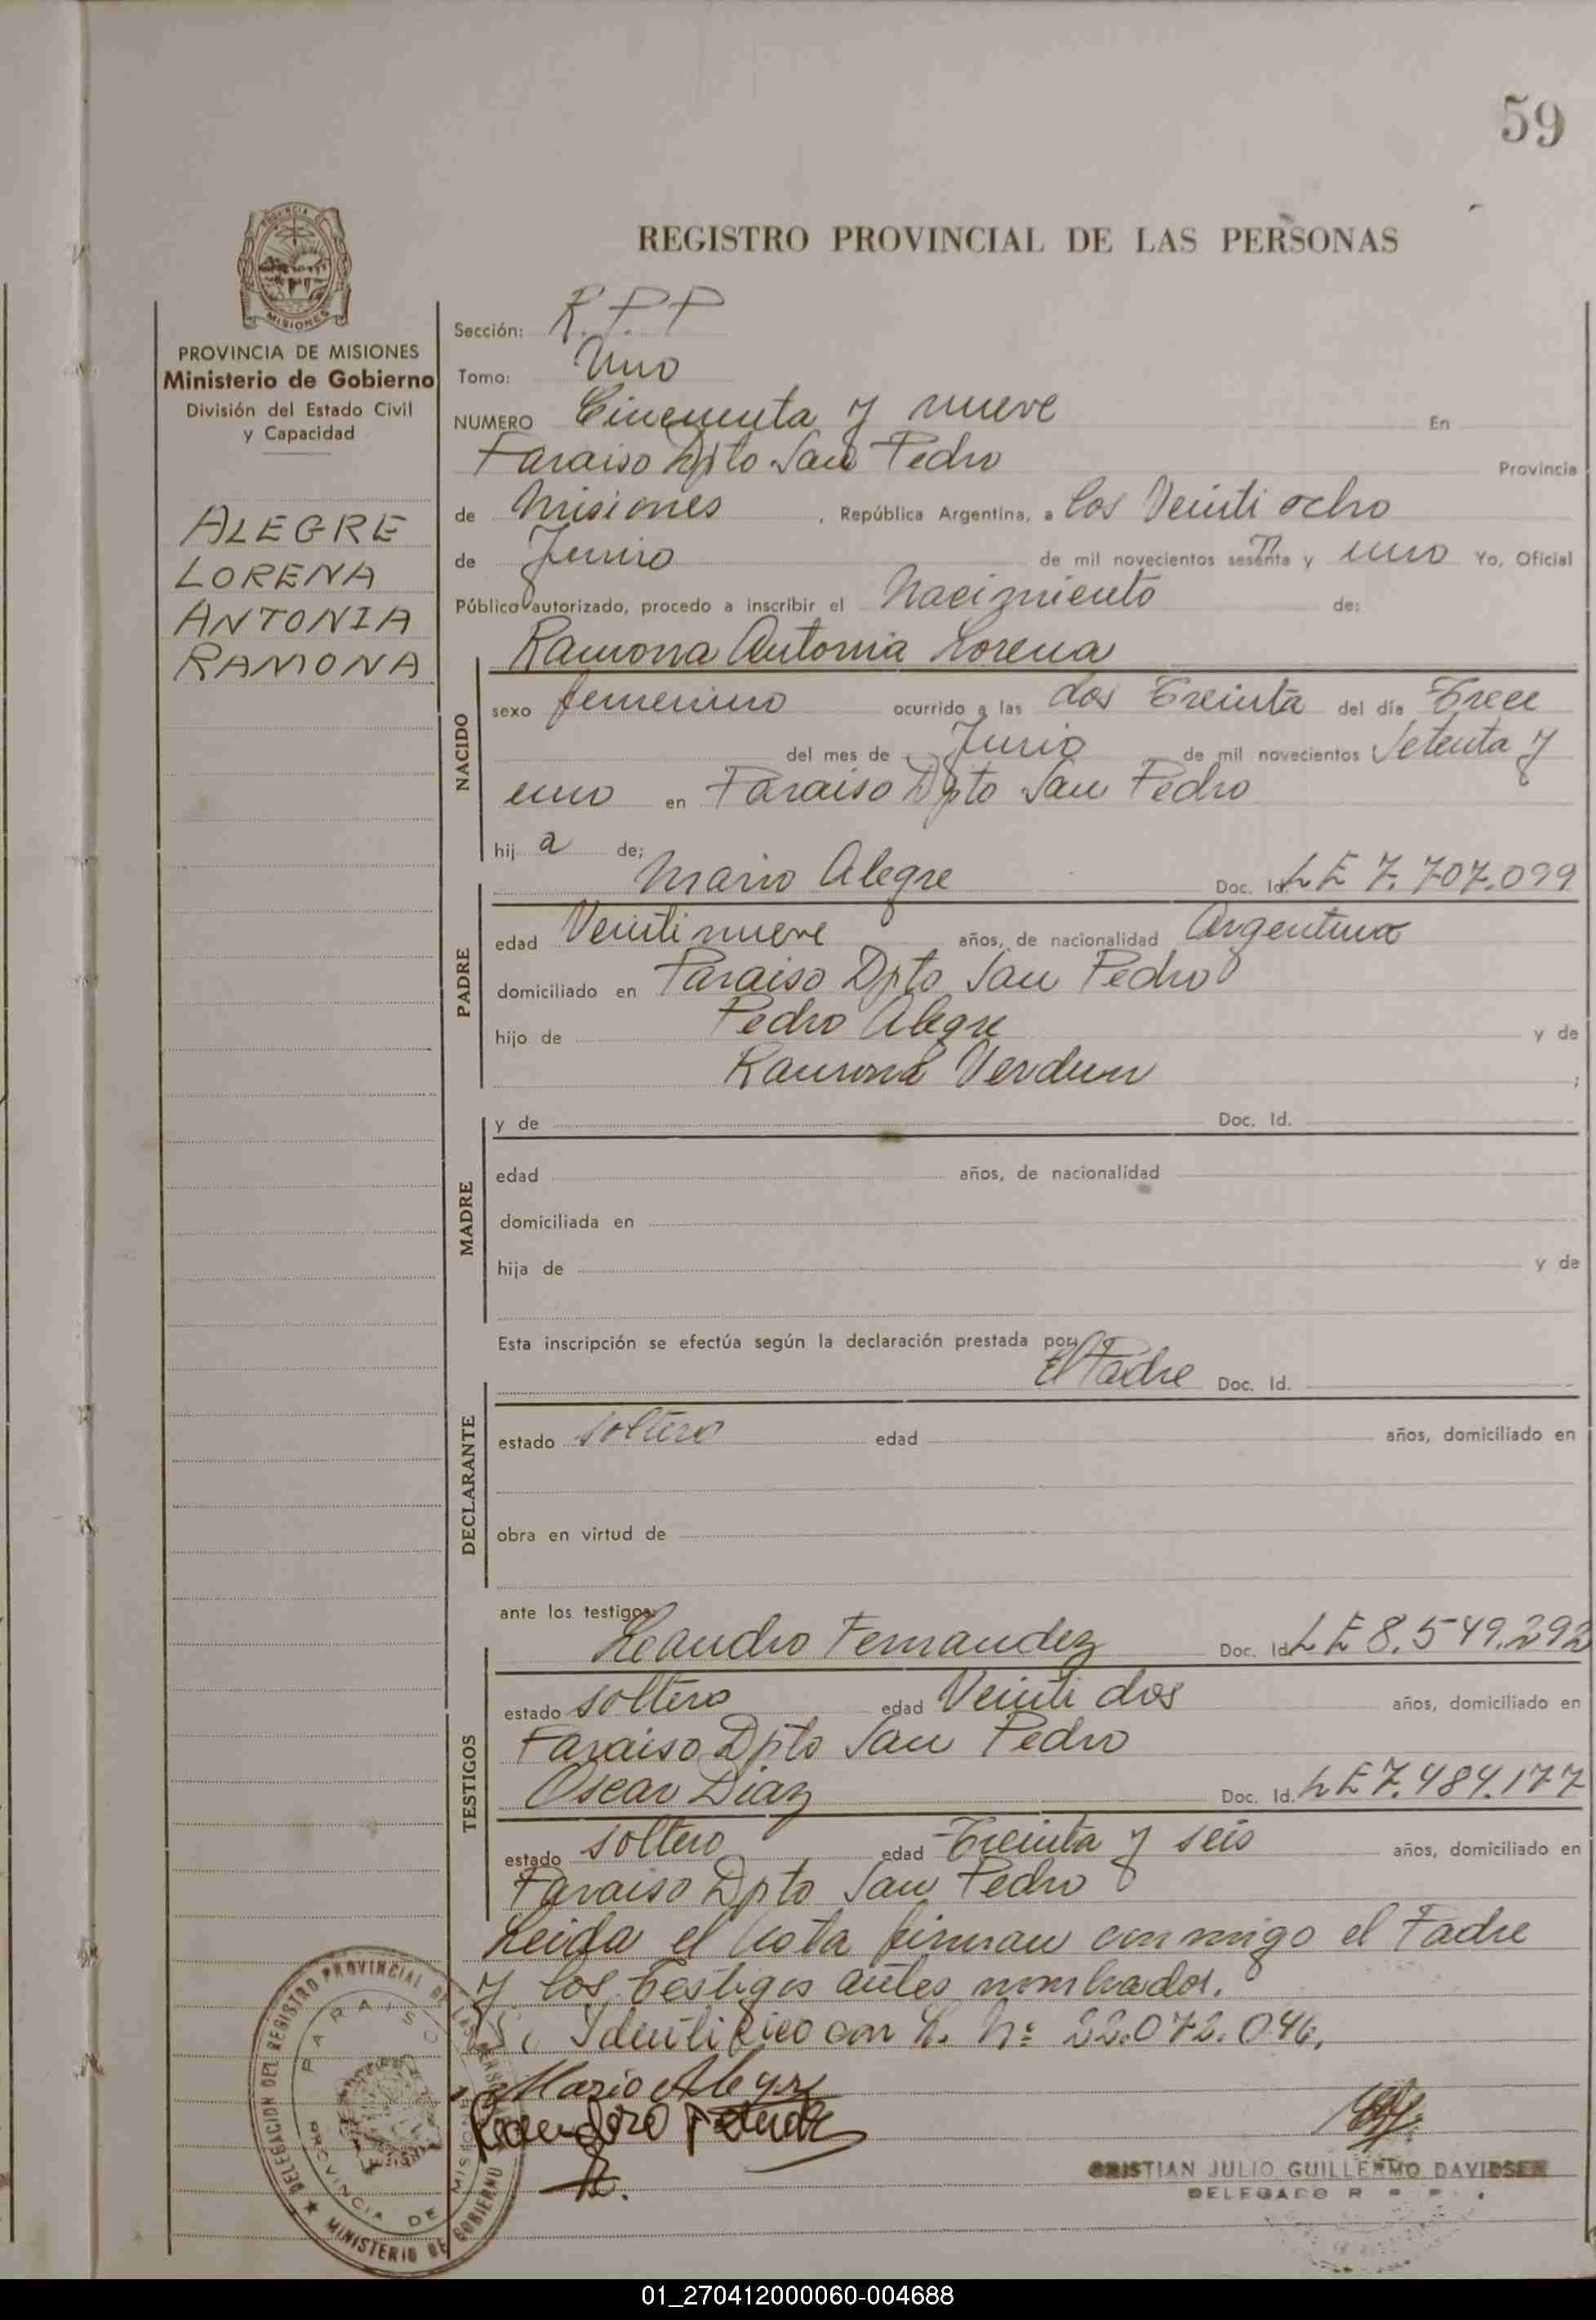 59
REGISTRO PROVINCIAL DE LAS PERSONAS
MISIONES
PROVINCIA DE MISIONES
Ministerio de Gobierno
División del Estado Civil
y Capacidad
ALEGRE
LORENA
ANTONIA
RAMONA
Sección: R.P.P
Tomo: Uno
NUMERO Cincuenta y nueve En
Paraiso Dpto San Pedro Provincia
de Misiones, República Argentina, a los Veinti ocho
de Junio de mil novecientos sesenta y uno Yo, Oficial
Público autorizado, procedo a inscribir el Nacimiento de:
Ramona Antonia Lorena
NACIDO
sexo femenino ocurrido a las dos Treinta del día Trece
del mes de Junio de mil novecientos Setenta y
uno en Paraiso Dpto San Pedro
hij a de;
PADRE
Mario Alegre Doc. Id. LE 7.707.099
edad Veinti nueve años, de nacionalidad Argentina
domiciliado en Paraiso Dpto San Pedro
hijo de Pedro Alegre y de
Ramona Verdun ;
MADRE
y de Doc. Id.
edad años, de nacionalidad
domiciliada en
hija de y de
Esta inscripción se efectúa según la declaración prestada por:
DECLARANTE
El Padre Doc. Id.
estado soltero edad años, domiciliado en
obra en virtud de
ante los testigos:
TESTIGOS
Leandro Fernandez Doc. Id. LE 8.549.292
estado soltero edad Veinti dos años, domiciliado en
Paraiso Dpto San Pedro
Oscar Diaz Doc. Id. LE 7.484.177
estado soltero edad Treinta y seis años, domiciliado en
Paraiso Dpto San Pedro
Leida el acta firman conmigo el Padre
y los testigos antes nombrados.
Se Identifico con L. Nº 22.072.046.
Mario Alegre
CRISTIAN JULIO GUILLERMO DAVIDSEN
DELEGADO R. P. P.
DELEGACION DEL REGISTRO PROVINCIAL DE LAS PERSONAS
PARAISO
PROVINCIA DE MISIONES
★ MINISTERIO DE GOBIERNO
01_270412000060-004688